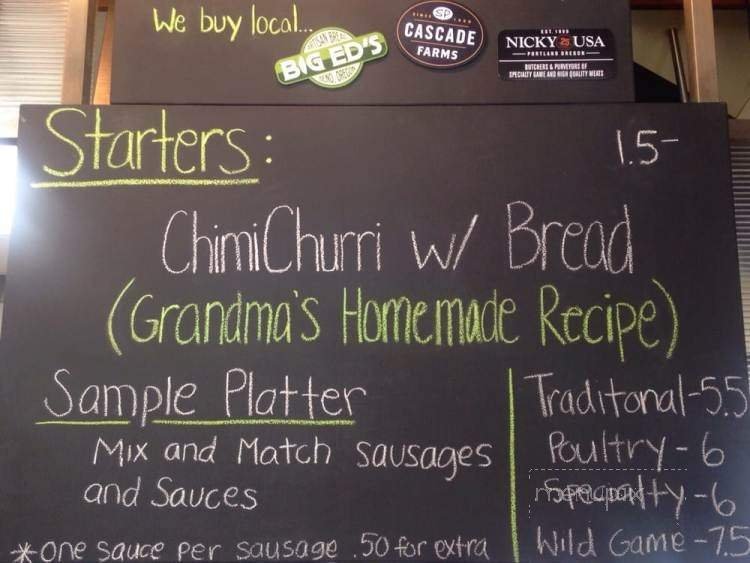 We buy local...
ARTISAN BREAD
BIG ED'S
OREGON
SINCE 1990
CASCADE
FARMS
EST. 1990
NICKY USA
PORTLAND OREGON
BUTCHERS & PURVEYORS OF
SPECIALTY GAME AND HIGH QUALITY MEATS
Starters: 1.5-
ChimiChurri w/ Bread
(Grandma's Homemade Recipe)
Sample Platter
Mix and Match sausages
and Sauces
*one sauce per sausage .50 for extra
Traditonal-5.5
Poultry-6
Specialty-6
menupix
Wild Game-7.5